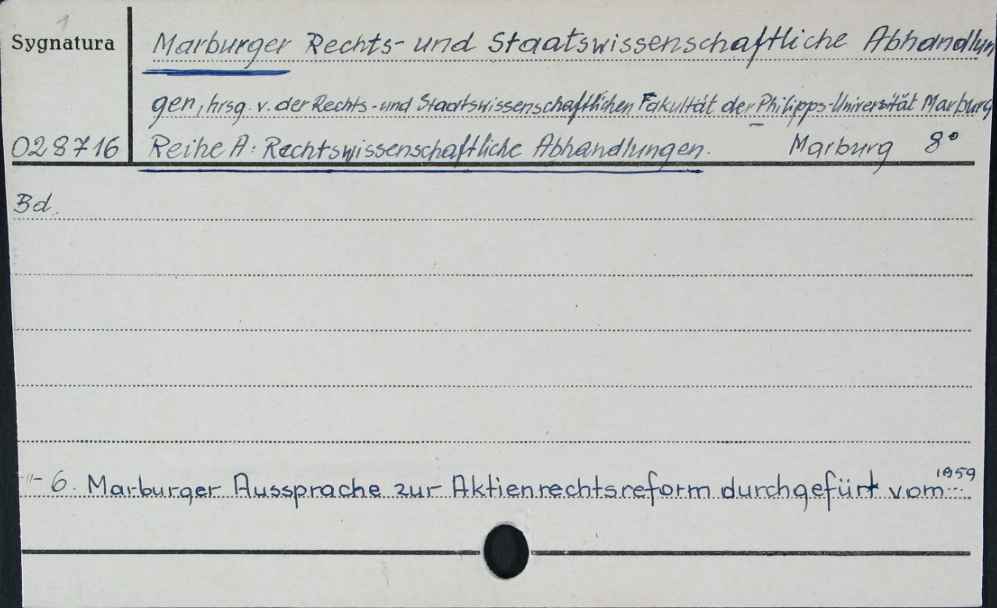 1
Sygnatura
Marburger Rechts- und Staatswissenschaftliche Abhandlun
gen, hrsg. v. der Rechts- und Staatswissenschaftlichen Fakultät der Philipps-Universität Marburg
028716
Reihe A: Rechtswissenschaftliche Abhandlungen. Marburg 8°
Bd.
-"- 6. Marburger Aussprache zur Aktienrechtsreform durchgefürt vom... 1959